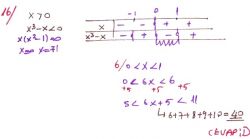 16/ x>0
x³-x<0
x(x²-1)=0
x=0 x=∓1
-1 0 1
x - - + +
x³-x - + - +
6/ 0<x<1
0<6x<6
+5 +5 +5
5<6x+5<11
↳ 6+7+8+9+10=40
(CEVAP: D)